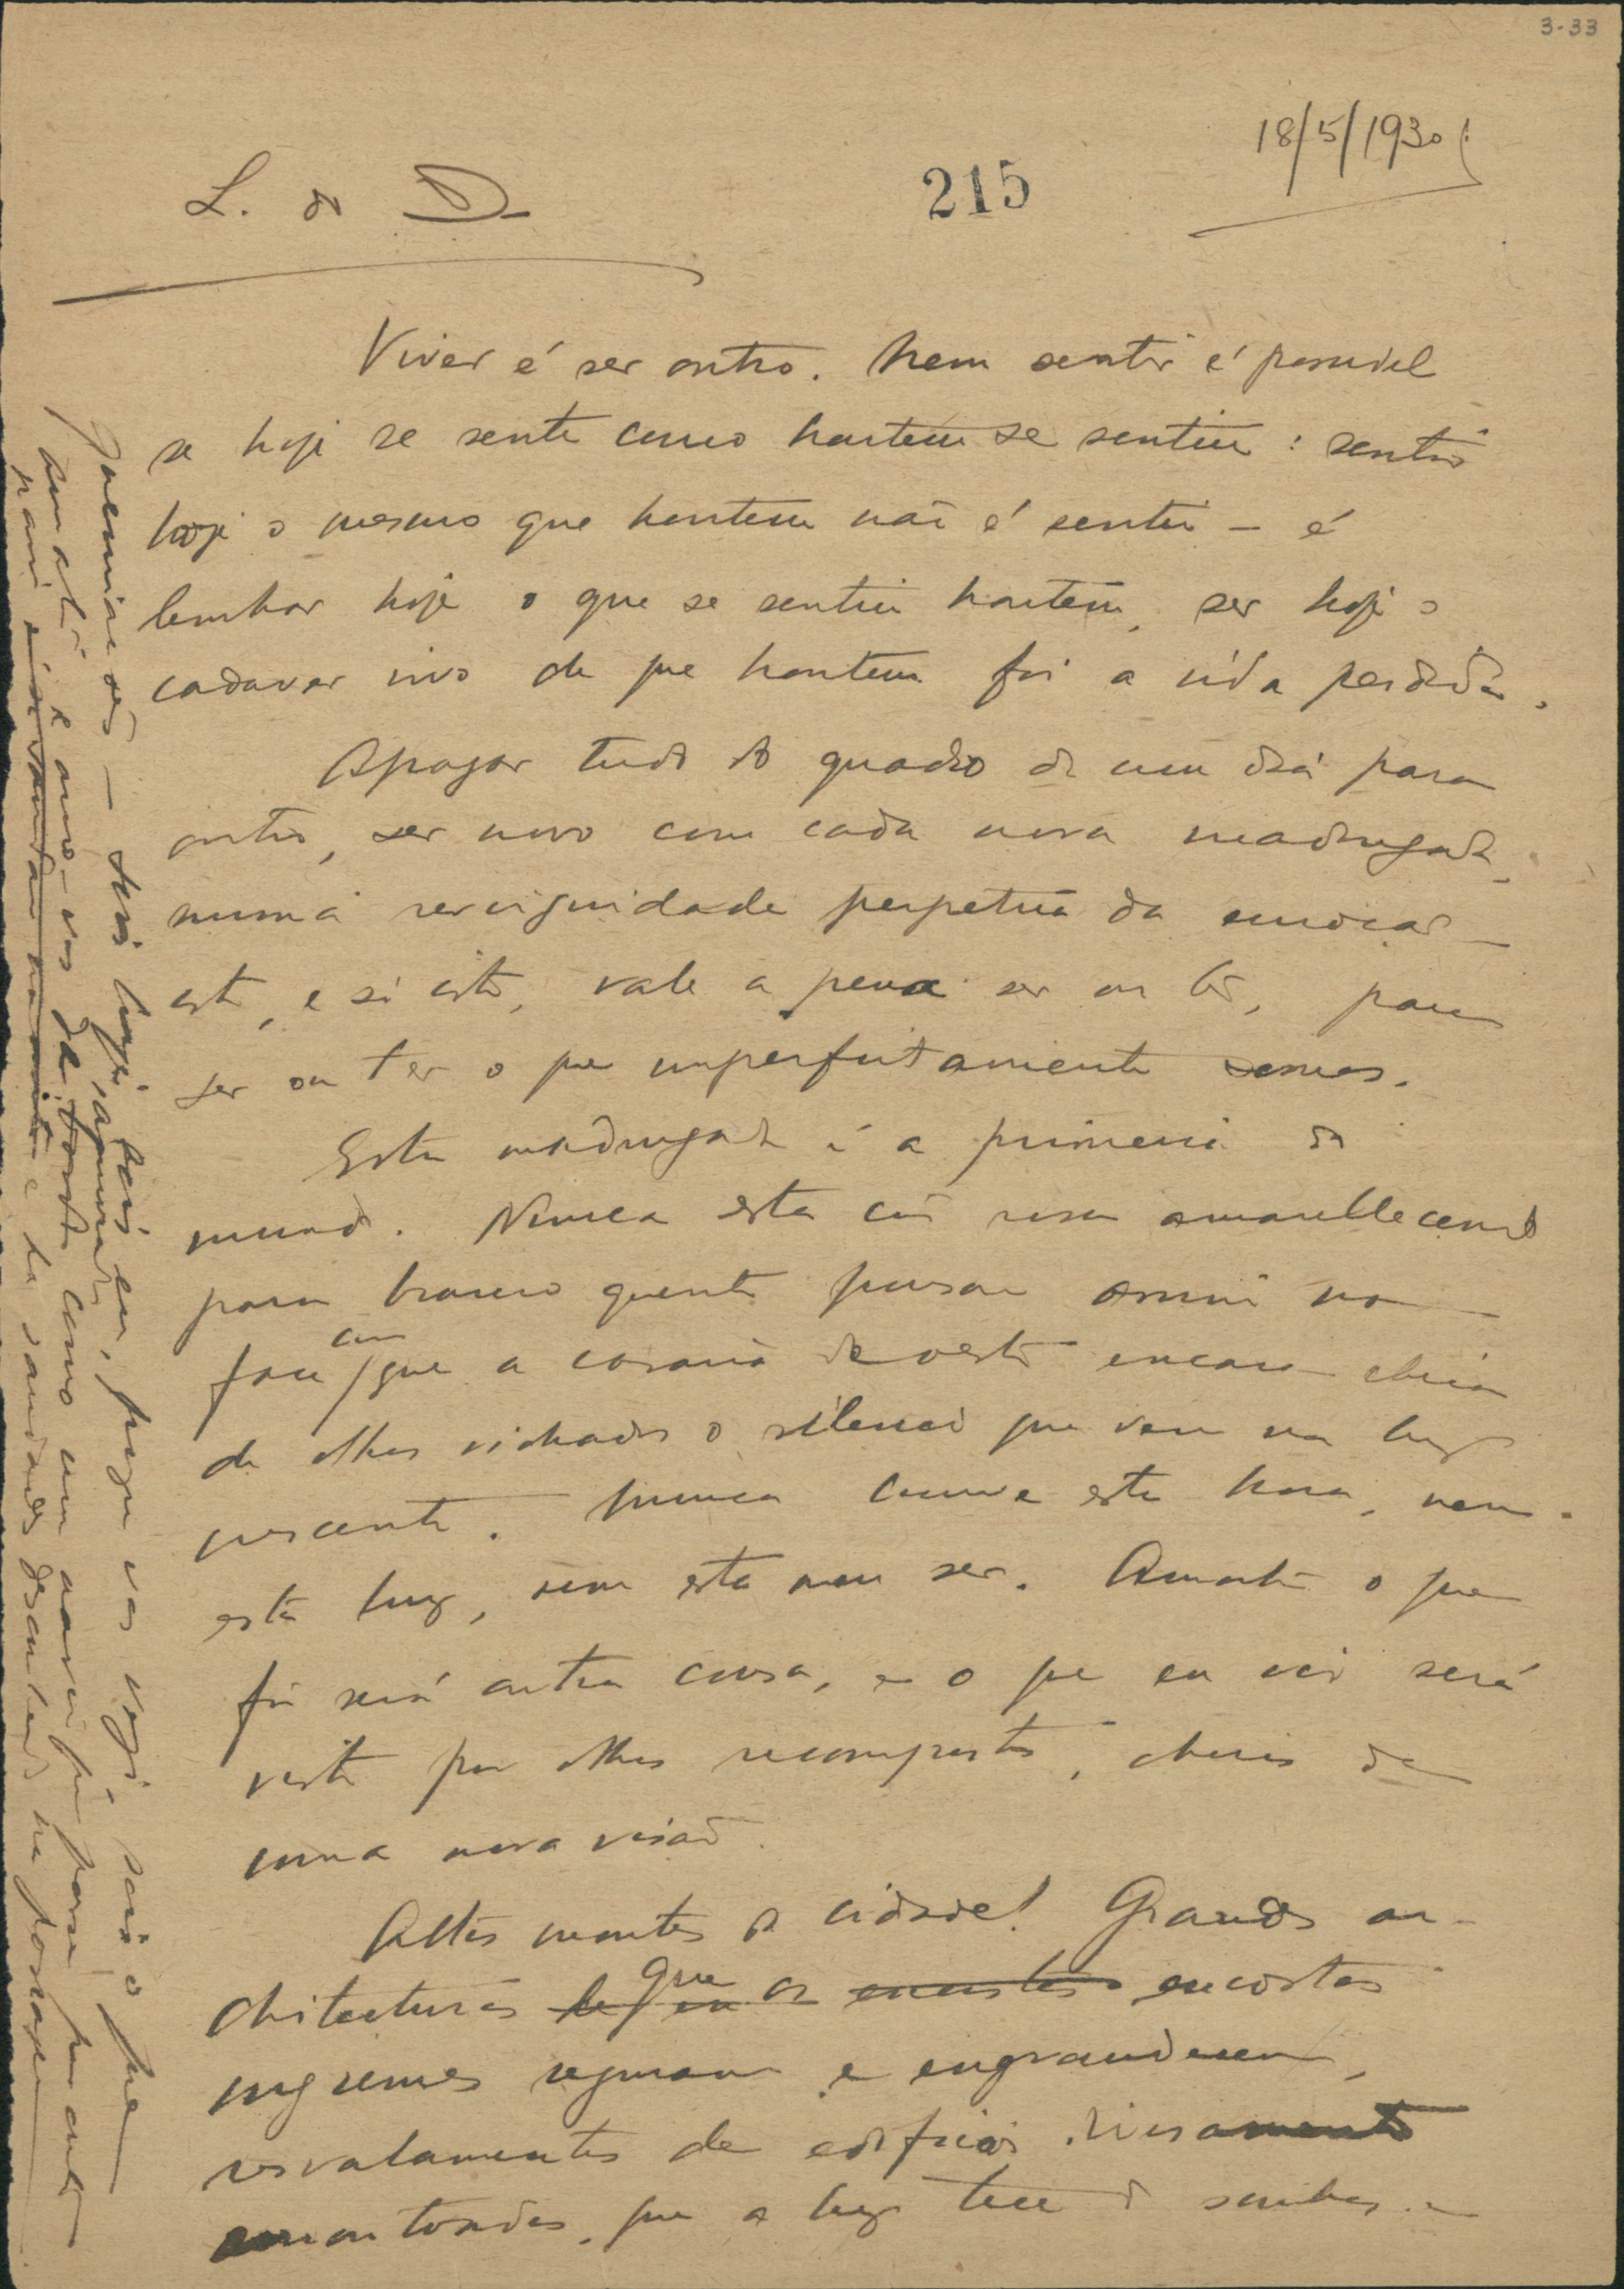 3-33
18/5/1930
L. do D.
215
Viver é ser outro. Nem sentir é possivel
se hoje se sente como hontem se sentiu: sentir
hoje o mesmo que hontem não é sentir — é
lembrar hoje o que se sentiu hontem, ser hoje o
cadaver vivo do que hontem foi a vida perdida.
Apagar tudo do quadro de um dia para
outro, ser novo com cada nova madrugada,
numa revirgindade perpetua da emoção —
isto, e só isto, vale a pena ser ou ter, para
ser ou ter o que imperfeitamente somos.
Esta madrugada é a primeira do
mundo. Nunca esta côr rosa amarellecendo
para branco quente pousou assim na
face com que a casaria de oeste encara cheia
de olhos vidrados o silencio que vem na luz
crescente. Nunca houve esta hora, nem
esta luz, nem este meu ser. Amanhã o que
fôr será outra cousa, e o que eu vir será
visto por olhos recompostos, cheios de
uma nova visão.
Altos montes da cidade! Grandes ar-
chitecturas que as encostas
ingremes seguram e engrandecem,
resvalamentos de edificios diversamente
amontoados, que a luz tece de sombras e
queimações — sois hoje, sois eu, porque vos vejo, sois o que
amanhã e amo-vos da amurada como um navio que passa por outro
navio e ha saudades desconhecidas na passagem